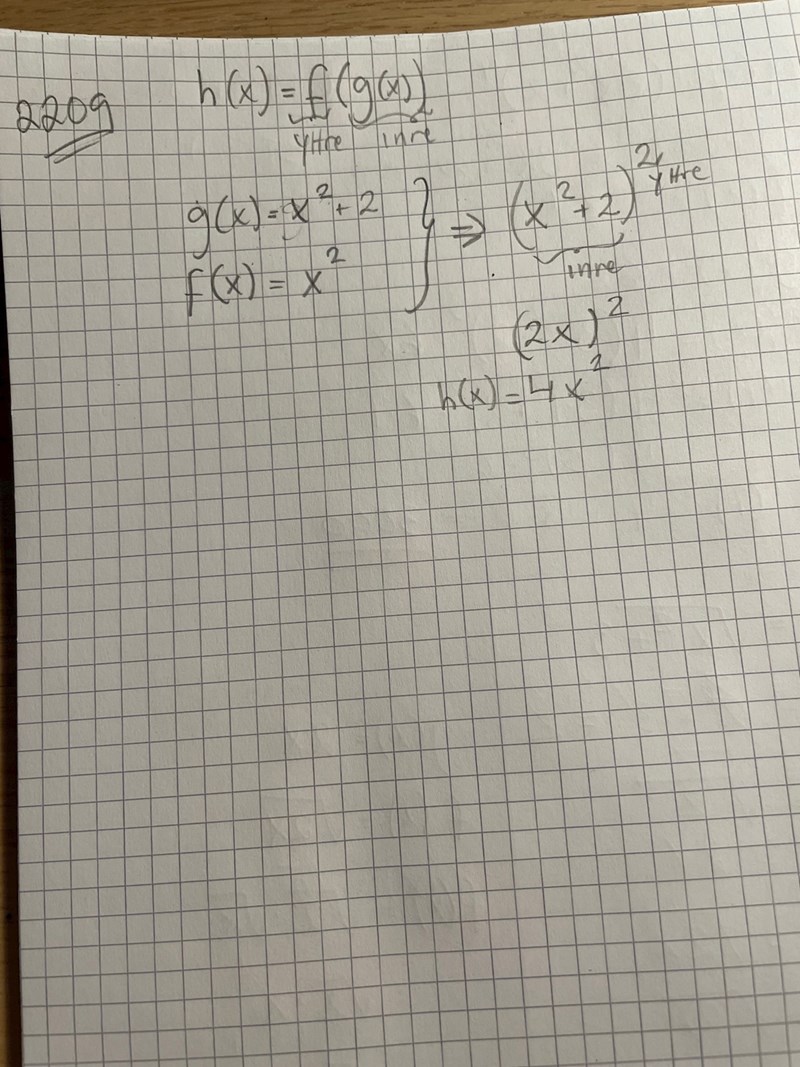 2209 h(x) = f(g(x))
yttre inre
g(x) = x² + 2 } ⇒ (x² + 2)² yttre
f(x) = x² inre
(2x)²
h(x) = 4x²